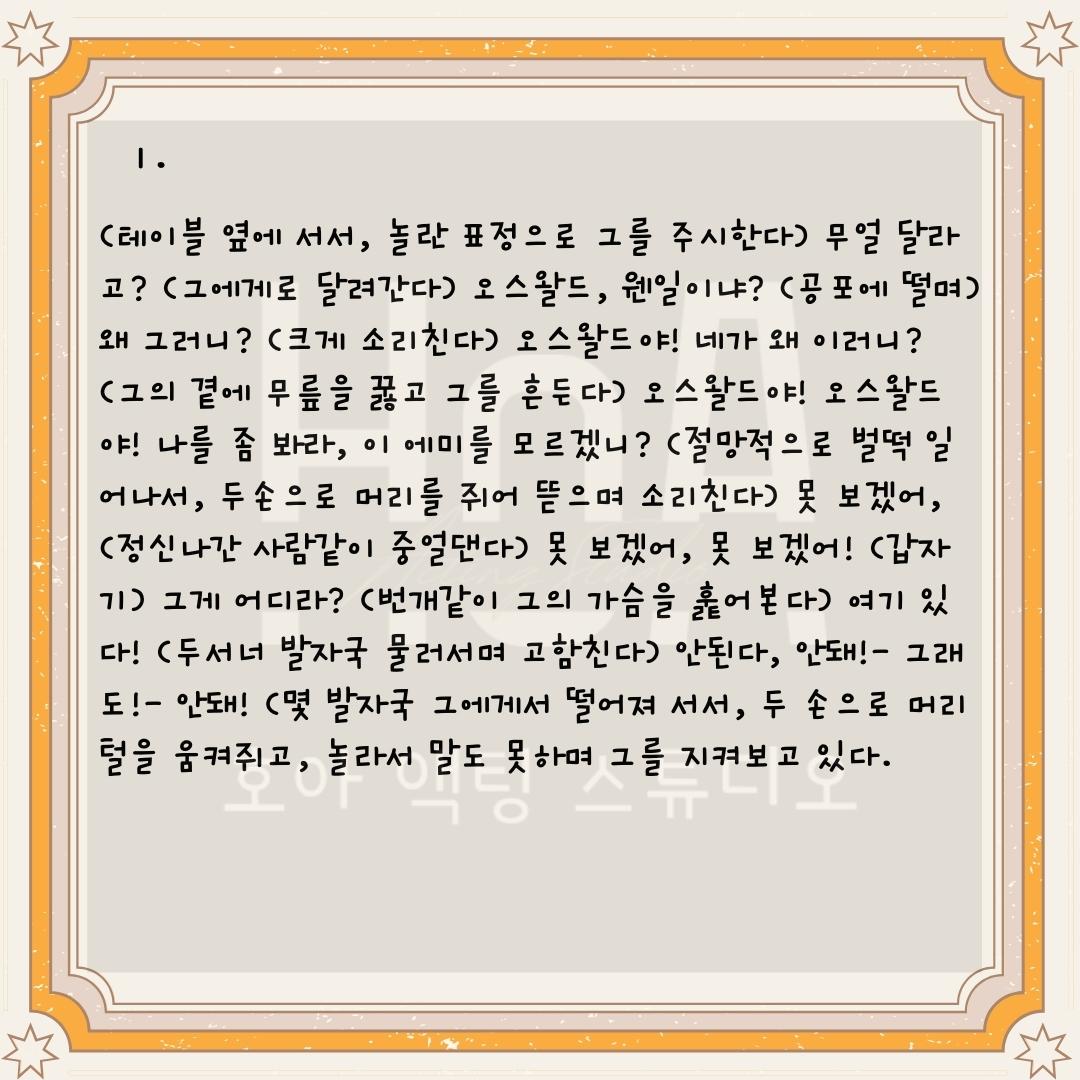 1.
(테이블 옆에 서서, 놀란 표정으로 그를 주시한다) 무얼 달라
고? (그에게로 달려간다) 오스왈드, 웬일이냐? (공포에 떨며)
왜 그러니? (크게 소리친다) 오스왈드야! 네가 왜 이러니?
(그의 곁에 무릎을 꿇고 그를 흔든다) 오스왈드야! 오스왈드
야! 나를 좀 봐라, 이 에미를 모르겠니? (절망적으로 벌떡 일
어나서, 두손으로 머리를 쥐어 뜯으며 소리친다) 못 보겠어,
(정신나간 사람같이 중얼댄다) 못 보겠어, 못 보겠어! (갑자
기) 그게 어디라? (번개같이 그의 가슴을 훑어본다) 여기 있
다! (두서너 발자국 물러서며 고함친다) 안된다, 안돼!- 그래
도!- 안돼! (몇 발자국 그에게서 떨어져 서서, 두 손으로 머리
털을 움켜쥐고, 놀라서 말도 못하며 그를 지켜보고 있다.
HnA
Acting Studio
호아 액팅 스튜디오